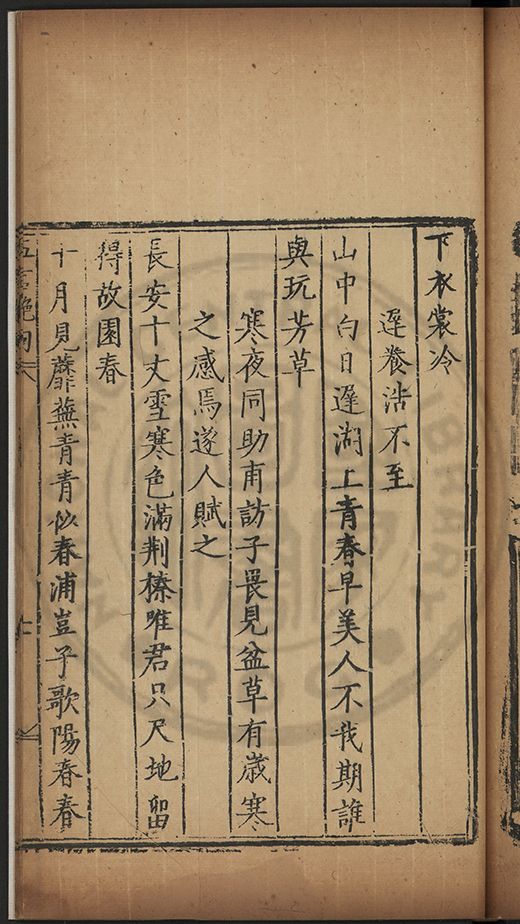 下衣裳冷
遲養浩不至
山中白日遲湖上青春早美人不我期誰
與玩芳草
寒夜同助甫訪子畏見盆草有歲寒
之感焉遂人賦之
長安十丈雪寒色滿荆榛唯君只尺地留
得故園春
十月見蘼蕪青青似春浦豈子歌陽春春
五言絶句